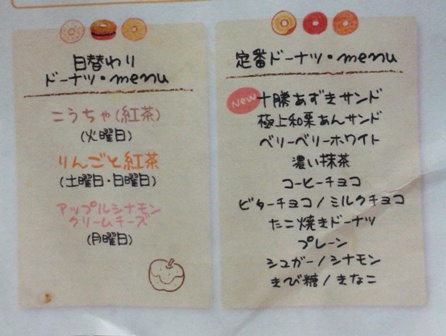 日替わり
ドーナツ・menu
こうちゃ(紅茶)
(火曜日)
りんごと紅茶
(土曜日・日曜日)
アップルシナモン
クリームチーズ
(月曜日)
定番ドーナツ・menu
New 十勝あずきサンド
極上和栗あんサンド
ベリーベリーホワイト
濃い抹茶
コーヒーチョコ
ビターチョコ/ミルクチョコ
たこ焼きドーナツ
プレーン
シュガー/シナモン
きび糖/きなこ